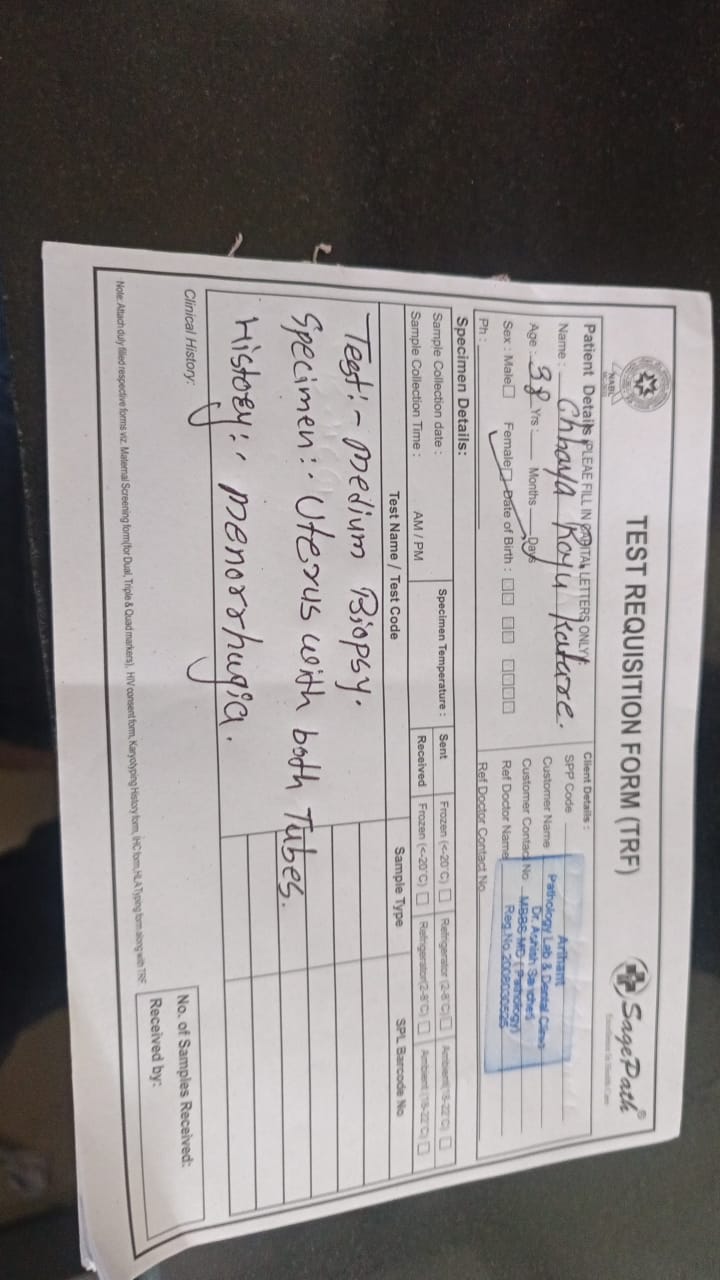 TEST REQUISITION FORM (TRF)
SagePath®
Excellence In Health Care
NABL
Patient Details (PLEAE FILL IN CAPITAL LETTERS ONLY):
Name : Chhaya Raju Katare.
Age : 38 Yrs : Months Days
Sex : Male Female Date of Birth :
Ph :
Client Details :
SPP Code
Customer Name
Customer Contact No
Ref Doctor Name
Ref Doctor Contact No.
Arihant
Pathology Lab & Dental Clinic
Dr. Ashish Sancheti
MBBS MD ( Pathology)
Reg.No.
Specimen Details:
Sample Collection date : Specimen Temperature : Sent Frozen (<-20°C) Refrigerator (2-8°C) Ambient (18-22°C)
Sample Collection Time : AM / PM Received Frozen (<-20°C) Refrigerator(2-8°C) Ambient (18-22°C)
Test Name / Test Code Sample Type SPL Barcode No
Test:- Medium Biopsy.
Specimen:- Uterus with both Tubes.
History:- Menorrhugia.
Clinical History:
No. of Samples Received:
Received by:
Note: Attach duly filled respective forms viz. Maternal Screening form(for Dual, Triple & Quad markers), HIV consent form, Karyotyping History form, IHC form, HLA Typing form along with TRF